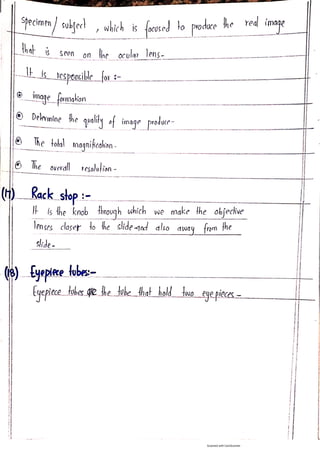 Specimen / subject , which is focused to produce the real image
that is seen on the ocular lens-
It is responcible for :-
image formation
Determine the quality of image produce-
The total magnification-
The overall resolution-
(17) Rack stop :-
It is the knob through which we make the objective
lenses closer to the slide and also away from the
slide-
(18) Eyepiece tubes:-
Eyepiece tubes are the tube that hold two eyepieces-
Scanned with CamScanner